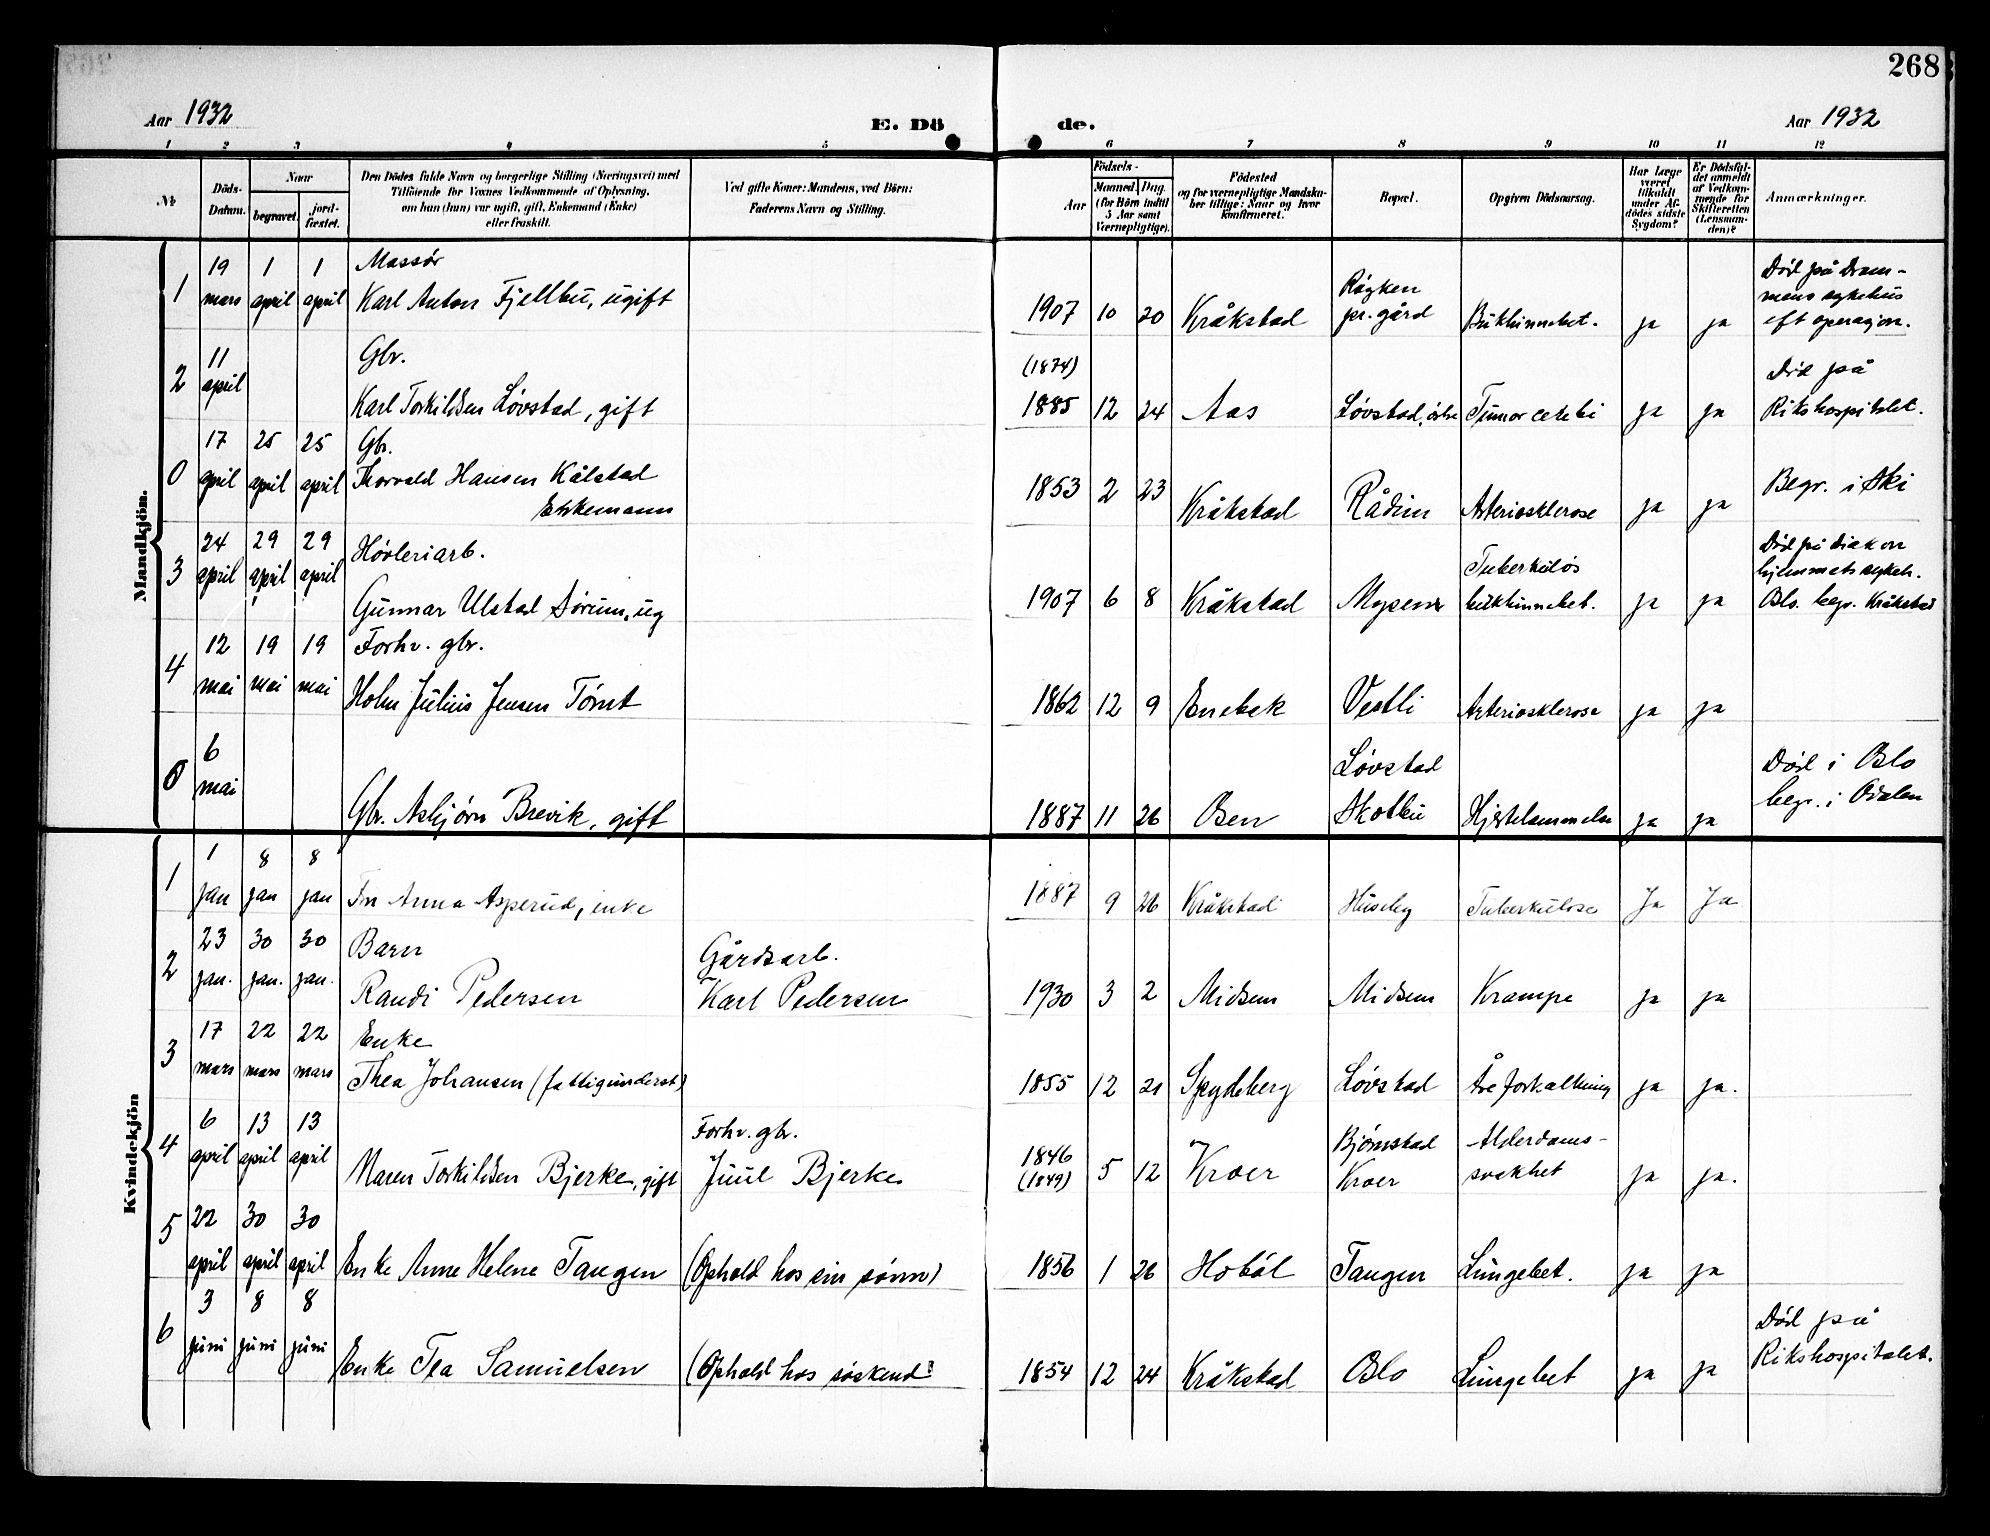 268
Aar 1932
E. Dö
de.
Aar 1932
1 2 3 4 5 6 7 8 9 10 11 12
No
Döds-
Datum.
Naar
begravet.
jord-
fæstet.
Den Dödes fulde Navn og borgerlige Stilling (Næringsvei) med
Tilföiende for Voxnes Vedkommende af Oplysning,
om han (hun) var ugift, gift, Enkemand (Enke)
eller fraskilt.
Ved gifte Koner: Mandens, ved Börn:
Faderens Navn og Stilling.
Födsels-
Aar
Maaned. Dag.
(for Börn indtil
5 Aar samt
Værnepligtige).
Födested
og for værnepligtige Mandska-
ber tillige: Naar og hvor
konfirmeret.
Bopæl.
Opgiven Dödsaarsag.
Har Læge
været
tilkaldt
under Af-
dödes sidste
Sygdom?
Er Dödsfal-
det anmeldt
af Vedkom-
mende for
Skifteretten
(Lensman-
den)?
Anmærkninger.
Mandkjön.
1
19 mars
1 april
1 april
Massör
Karl Anton Fjellbu, ugift
1907 10 20
Kråkstad
Røyken
pr.gård
Bukhinnebet.
ja ja
Död på Dram-
mens sykehus
eft operasjon.
2
11 april
Gbr.
Karl Torkildsen Løvstad, gift
(1874)
1885 12 24
Aas
Løvstad, östre
Tumor cerebi
ja ja
Död på
Rikshospitalet.
0
17 april
25 april
25 april
Gbr.
Thorvald Hansen Kålstad
Enkemann
1853 2 23
Kråkstad
Rådim
Arteriosklerose
ja ja
Begr. i Ski
3
24 april
29 april
29 april
Høvleriarb.
Gunnar Ulstad Sørum, ug
1907 6 8
Kråkstad
Mysen
Tuberkuløs
bukhinnebet.
ja ja
Död på diakon
hjemmets sykeh.
Oslo. begr. Kråkstad
4
12 mai
19 mai
19 mai
Forhv. gbr.
Holm Julius Jensen Tømt
1862 12 9
Enebak
Vestli
Arteriosklerose
ja ja
0
6 mai
Gbr. Asbjørn Brevik, gift
1887 11 26
Osen
Løvstad
Skotbu
Hjertelammelse
ja ja
Död i Oslo
begr. i Odalen
Kvindekjön
1
1 jan
8 jan
8 jan
Fru Anna Asperud, enke
1887 9 26
Kråkstad
Huseby
Tuberkulose
Ja Ja
2
23 jan.
30 jan.
30 jan.
Barn
Randi Pedersen
Gårdsarb.
Karl Pedersen
1930 3 2
Midsem
Midsem
Krampe
ja ja
3
17 mars
22 mars
22 mars
Enke
Thea Johansen (fattigunderst)
1855 12 21
Spydeberg
Løvstad
Åreforkalkning
ja ja.
4
6 april
13 april
13 april
Maren Torkildsen Bjerke, gift
Forhv. gbr.
Juul Bjerke
1846
(1849) 5 12
Kroer
Bjørnstad
Kroer
Alderdoms-
svakhet
ja ja.
5
22 april
30 april
30 april
Enke Anne Helene Tangen
(Ophold hos sin sønn)
1856 1 26
Hobøl
Tangen
Lungebet.
ja ja
6
3 juni
8 juni
8 juni
Enke Tea Samuelsen
(Ophold hos søskend
1854 12 24
Kråkstad
Oslo
Lungebet
ja ja
Död på
Rikshospitalet.